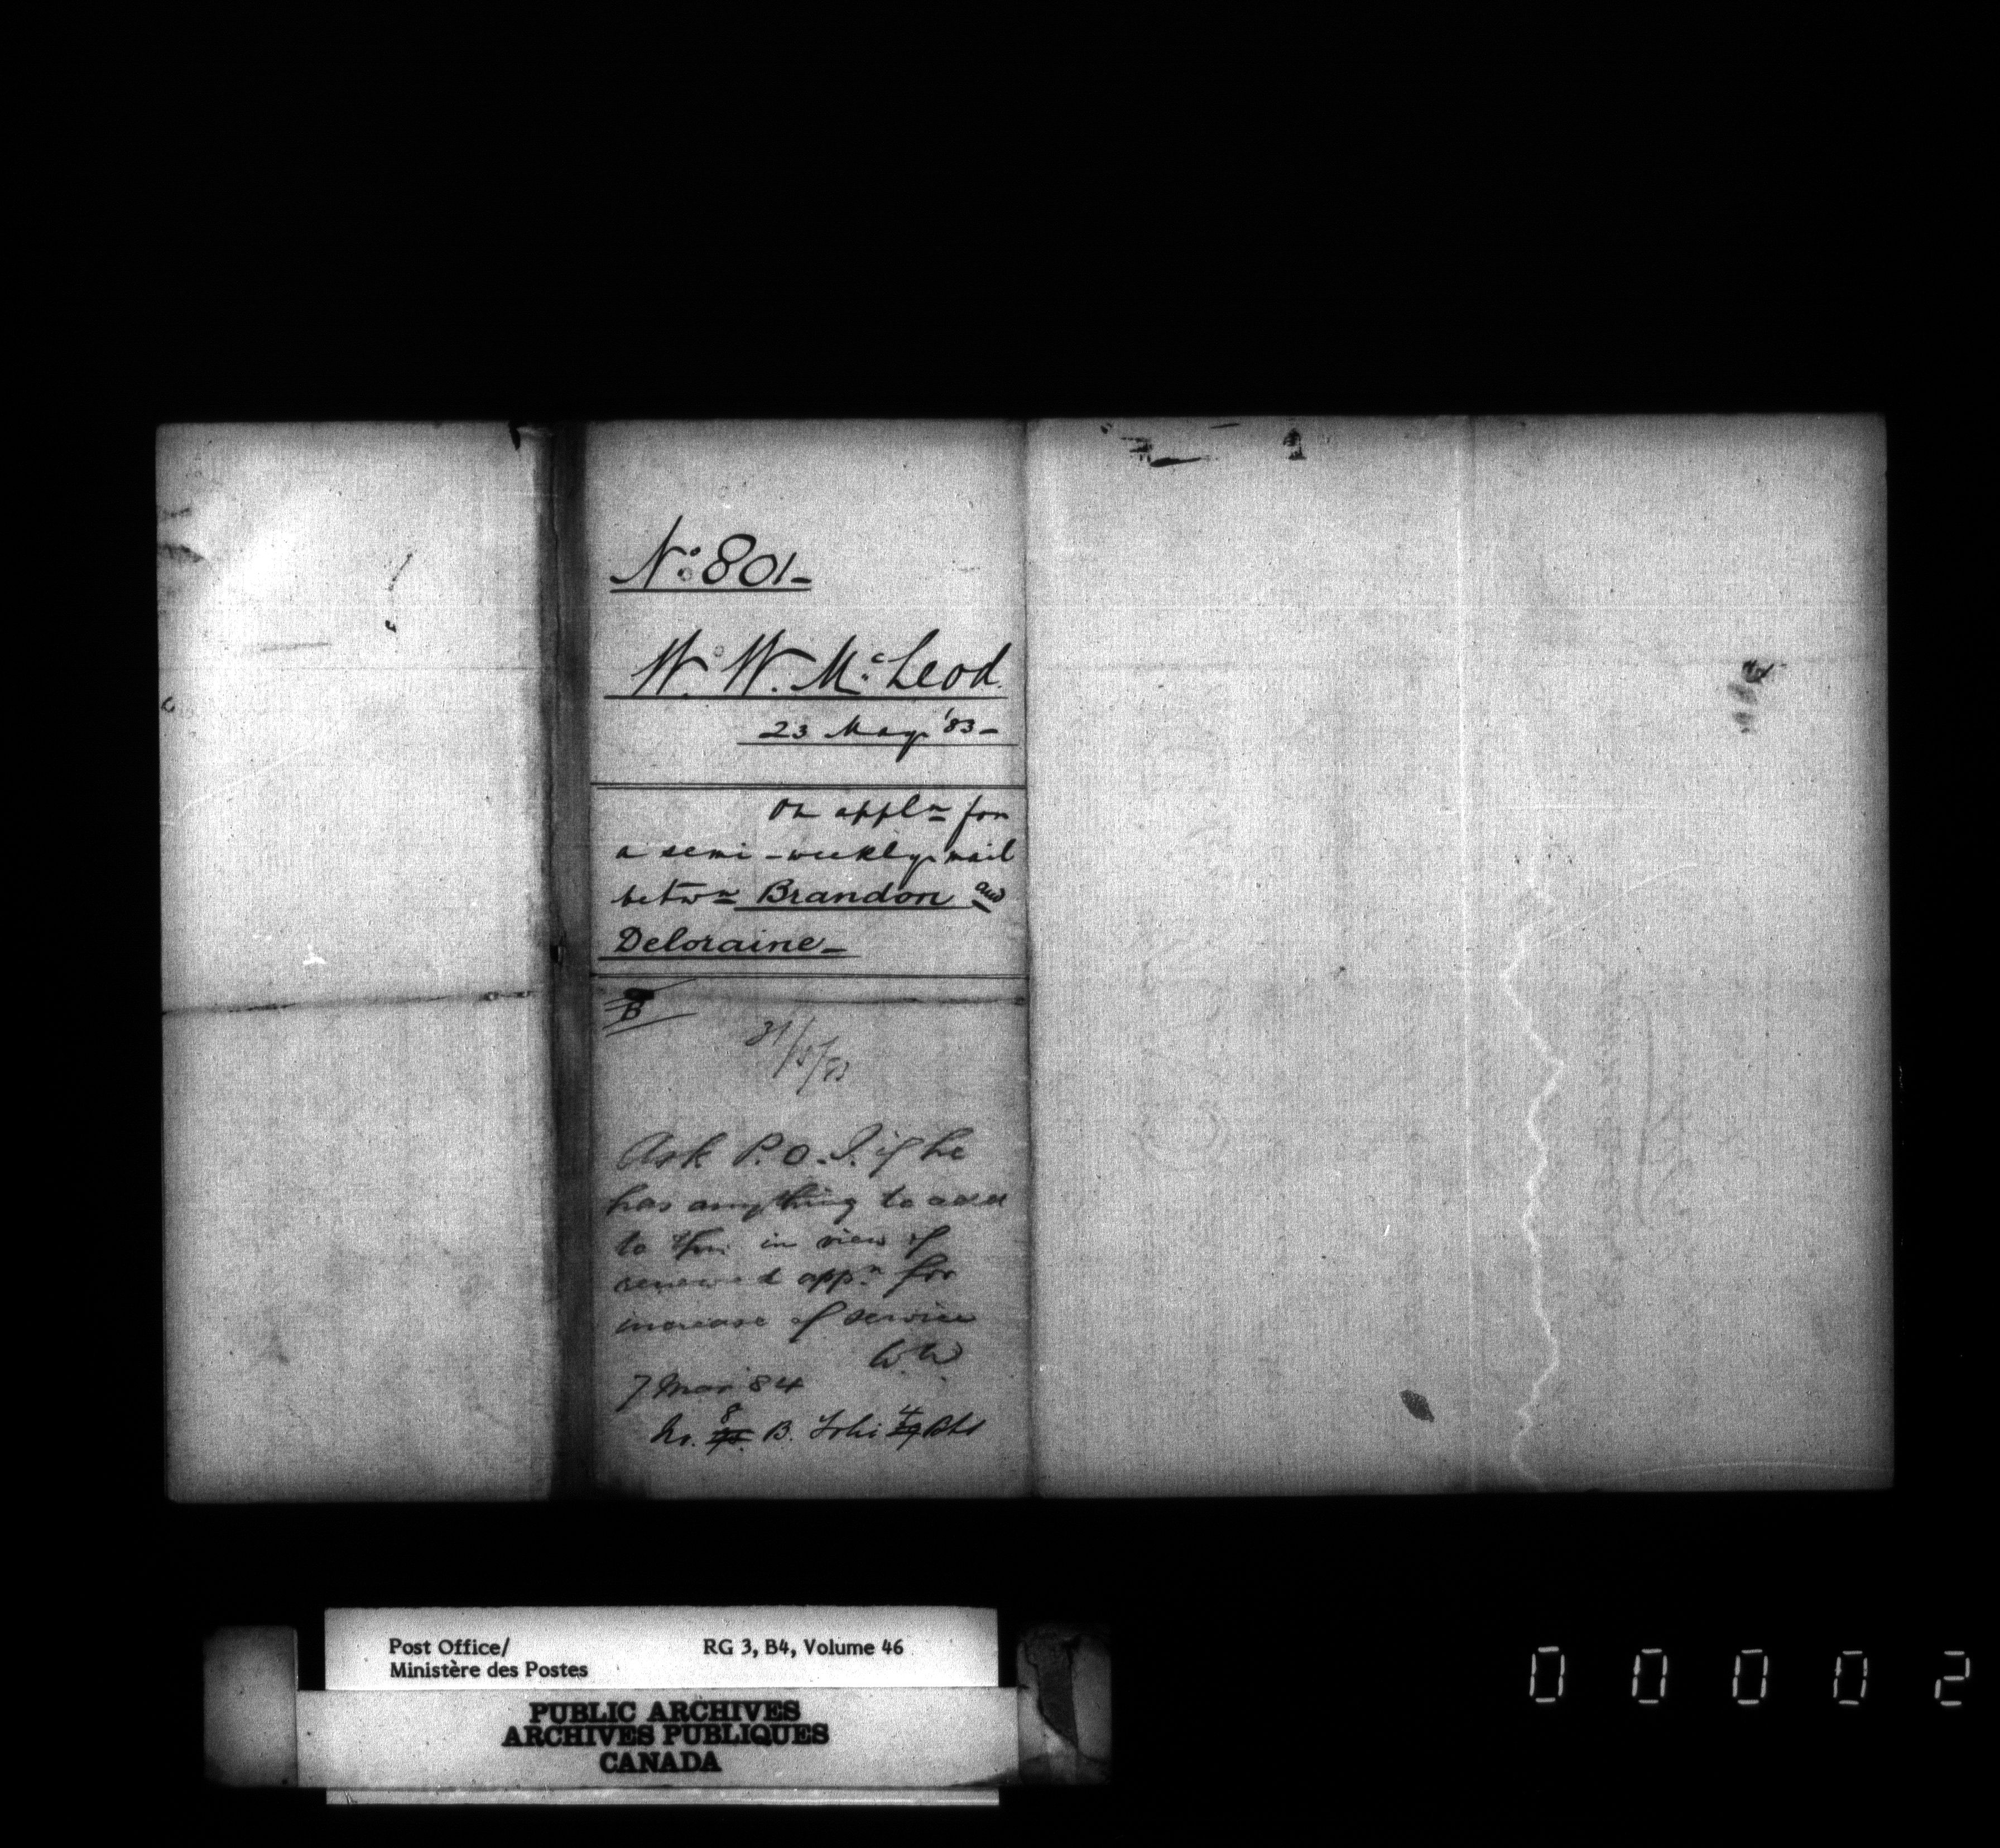 No. 801-
W. W. McLeod.
23 May '83-
On appln for
a semi-weekly mail
betwn Brandon and
Deloraine-
B
31/5/83
Ask P.O.I. if he
has anything to add
to this in view of
renewed appn for
increase of service
W.W.
7 Mar 84
No. 8 B.
Post Office/ RG 3, B4, Volume 46
Ministère des Postes
PUBLIC ARCHIVES
ARCHIVES PUBLIQUES
CANADA
0 0 0 0 2